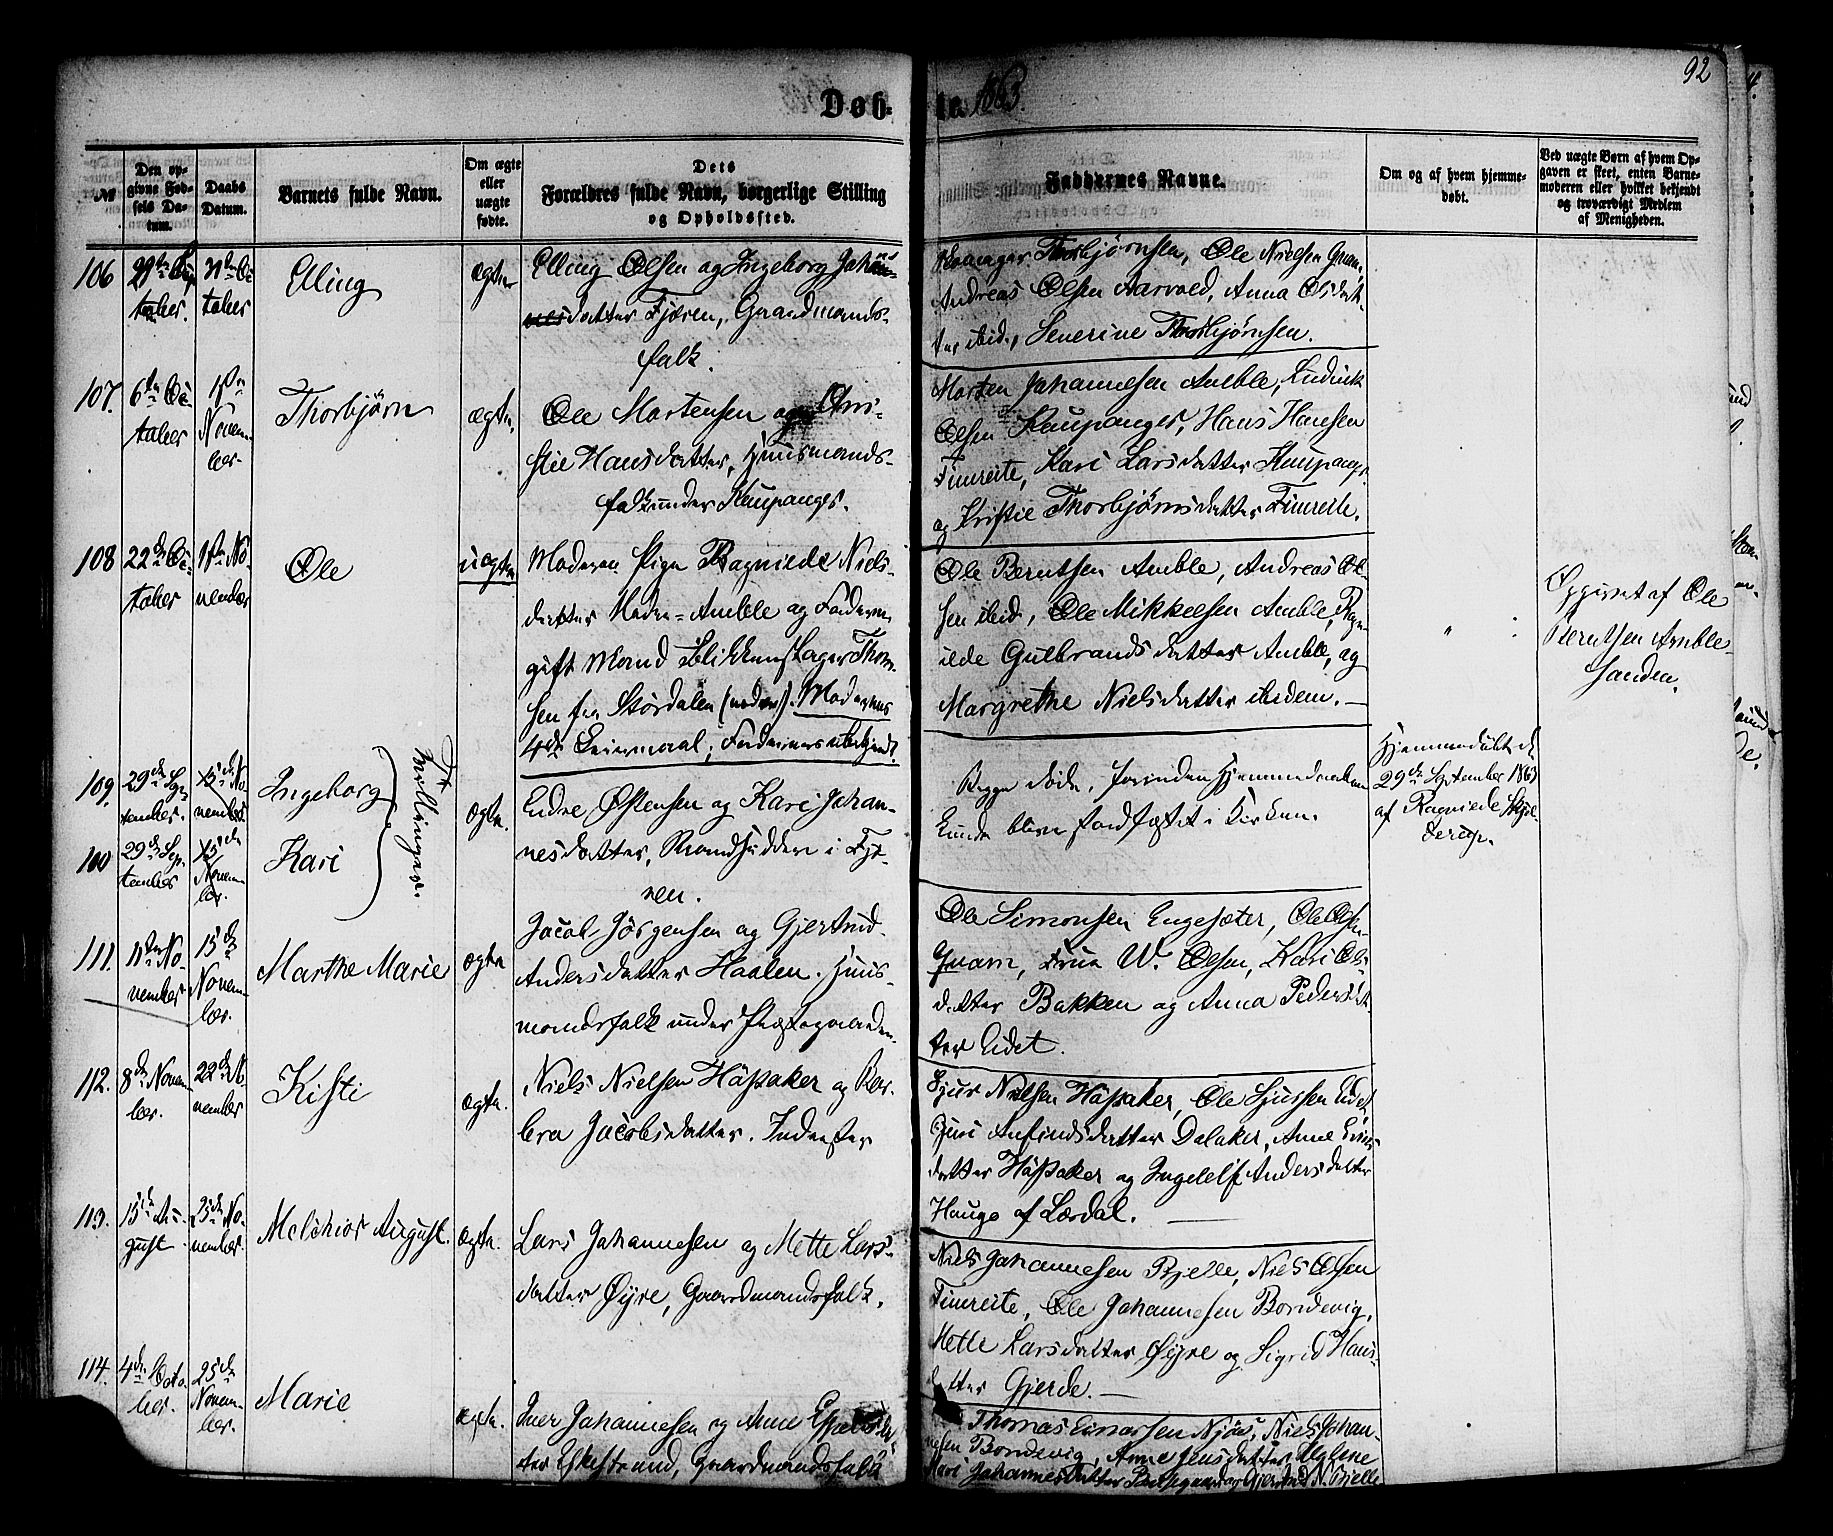 92
Døb-
te. 1863.
№
Den op-
givne Fød-
sels Da-
tum.
Daabs
Datum.
Barnets fulde Navn.
Om ægte
eller
uægte
fødte.
Dets
Forældres fulde Navn, borgerlige Stilling
og Opholdssted.
Faddernes Navne.
Om og af hvem hjemme-
døbt.
Ved uægte Børn af hvem Op-
gaven er skeet, enten Barne-
moderen eller hvilket bekjendt
og troværdigt Medlem
af Menigheden.
106
Elling
Elling Olsen og Ingeborg Johan-
nesdatter Fjæren, Gaardmands-
folk.
Thorbjørnsen, Ole Nielsen Qvam,
Andreas Olsen Aarvold, Anna Olsdat-
ter ibid., Severine Thorbjørnsen.
107.
6te Oc-
tober
1ste
Novem-
ber.
Thorbjørn
ægte.
Ole Mortensen og Chri-
stie Hansdatter, Huusmands-
folk under Kaupanger.
Morten Johannesen Amble, Ludvick
Olsen Kaupanger, Hans Hansen
Timreite, Kari Larsdatter Kaupanger
og Kristie Thorbjørnsdatter Timreite.
108
22de Oc-
tober
1ste No-
vember
Ole
uægte
Moderen Pige Ragnilde Niels-
datter Nedre-Amble og Faderen
gift Mand Blikkenslager Thom-
sen fra Størdalen (nedre). Moderens
4de Leiermaal, Faderens ubekjendt.
Ole Berntsen Amble, Andreas Ol-
sen ibid, Ole Mikkelsen Amble, Ragn-
ilde Gulbrandsdatter Amble, og
Margrethe Nielsdatter ibidem. —
"
Opgivet af Ole
Berntsen Amble-
sanden.
109.
29de Sep-
tember.
15de No-
vember
Ingeborg
Tvillinger.
ægte.
Endre Østensen og Kari Johan-
nesdatter, Strandsiddere i Fjæ-
ren.
Begge døde, forinden Hjemmedaaben
kunde blive stadfæstet i Kirken.
Hjemmedøbt d.
29de September 1863
af Ragnilde Skjel-
derup.
100
29de Sep-
tember
15de
Novem-
ber.
Kari
111.
11te No-
vember
15de
Novem-
ber.
Marthe Marie
ægte
Jacob Jørgensen og Gjertrud
Andersdatter Haalen. Huus-
mandsfolk under Præstegaarden
Ole Simonsen Engesæter, Ole Olsen
Qvam, Frue W. Olsen, Kari Ols-
datter Bakken og Anna Pedersdat-
ter Eidet.
112.
8de Novem-
ber.
22de No-
vember
Kisti
ægte.
Niels Nielsen Håbaker og Bar-
bra Jacobsdatter. Inderster
Sjur Nielsen Håbaker, Ole Sjursen Eidet,
Guri Anfindsdatter Dalaker, Anne
datter Håbaker og Ingelelf Andersdatter
Hauge af Lærdal. —
113.
15de Au-
gust
25de No-
vember.
Melchior August.
ægte.
Lars Johannesen og Mette Lars-
datter Øyre, Gaardmandsfolk.
Niels Johannesen Bjelle, Niels Olsen
Timreite, Ole Johannesen Bondevig,
Mette Larsdatter Øyre og Sigrid Hans-
datter Gjerde. —
114.
4de Octo-
ber.
25de
Novem-
ber.
Marie
ægte.
Iver Johannesen og Anne
ter Eskestrand, Gaardmandsfolk
Thomas Einarsen Njøs, Niels Johan-
nesen Bondevig, Anne Jensdatter
Mari Johannesdatter Præstegaarden og Gjertrud N. Bjelle